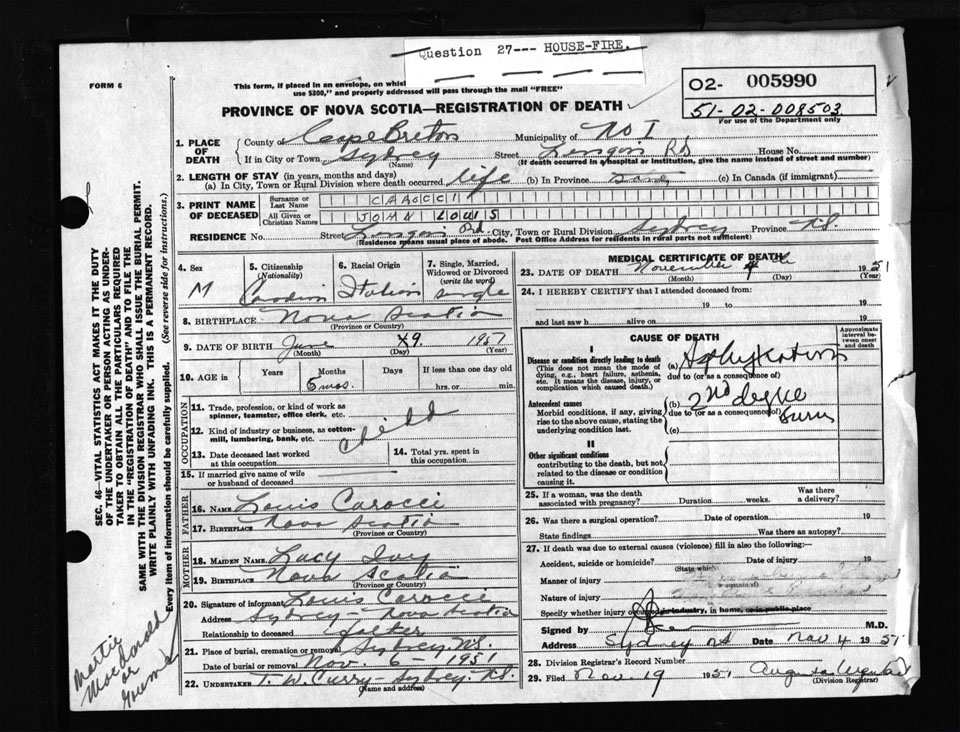 Question 27--- HOUSE-FIRE.
FORM 6
This form, if placed in an envelope, on which
use $300," and properly addressed will pass through the mail "FREE"
PROVINCE OF NOVA SCOTIA—REGISTRATION OF DEATH
O2- 005990
51-02-008503
For use of the Department only
1. PLACE OF DEATH
County of Cape Breton Municipality of No 1
If in City or Town Sydney Street Lingan Rd House No.
(Name) (If death occurred in a hospital or institution, give the name instead of street and number)
2. LENGTH OF STAY (in years, months and days)
(a) In City, Town or Rural Division where death occurred life (b) In Province (c) In Canada (if immigrant)
3. PRINT NAME OF DECEASED
Surname or Last Name CAROCCI
All Given or Christian Names JOHN LOUIS
RESIDENCE No. Street Lingan Rd City, Town or Rural Division Sydney Province N.S.
(Residence means usual place of abode. Post Office Address for residents in rural parts not sufficient)
4. Sex M
5. Citizenship (Nationality) Canadian
6. Racial Origin Italian
7. Single, Married, Widowed or Divorced (write the word) single
8. BIRTHPLACE Nova Scotia
(Province or Country)
9. DATE OF BIRTH June 9. 1951
(Month) (Day) (Year)
10. AGE in Years Months Days If less than one day old
6 mos. hrs. or min.
OCCUPATION
11. Trade, profession, or kind of work as spinner, teamster, office clerk, etc.
12. Kind of industry or business, as cotton-mill, lumbering, bank, etc.
child
13. Date deceased last worked at this occupation
14. Total yrs. spent in this occupation
15. If married give name of wife or husband of deceased
FATHER
16. NAME Louis Carocci
17. BIRTHPLACE Nova Scotia
(Province or Country)
MOTHER
18. MAIDEN NAME Lucy
19. BIRTHPLACE Nova Scotia
(Province or Country)
20. Signature of informant Louis Carocci
Address Sydney - Nova Scotia
Relationship to deceased father
21. Place of burial, cremation or removal Sydney, N.S.
Date of burial or removal Nov. 6 - 1951
22. UNDERTAKER T. W. Curry - Sydney, N.S.
(Name and address)
MEDICAL CERTIFICATE OF DEATH
23. DATE OF DEATH November 4 th 1951
(Month) (Day) (Year)
24. I HEREBY CERTIFY that I attended deceased from:
19 to 19
and last saw h alive on 19
CAUSE OF DEATH
Approximate interval between onset and death
Disease or condition directly leading to death
(This does not mean the mode of dying, e.g., heart failure, asthenia, etc. It means the disease, injury, or complication which caused death.)
(a) Asphyxiation
due to (or as a consequence of)
Antecedent causes
Morbid conditions, if any, giving rise to the above cause, stating the underlying condition last.
(b) 2nd degree burns
due to (or as a consequence of)
(c)
II
Other significant conditions
contributing to the death, but not related to the disease or condition causing it.
25. If a woman, was the death associated with pregnancy? Duration weeks. Was there a delivery?
26. Was there a surgical operation? Date of operation
State findings Was there an autopsy?
27. If death was due to external causes (violence) fill in also the following:—
Accident, suicide or homicide? Date of injury 19
(State which)
Manner of injury
Nature of injury
Specify whether injury occurred in industry, in home, or in public place
Signed by M.D.
Address Sydney NS Date Nov 4 1951
28. Division Registrar's Record Number
29. Filed Nov. 19 1951
(Division Registrar)
SEC. 46—VITAL STATISTICS ACT MAKES IT THE DUTY
OF THE UNDERTAKER OR PERSON ACTING AS UNDER-
TAKER TO OBTAIN ALL THE PARTICULARS REQUIRED
IN THE "REGISTRATION OF DEATH" AND TO FILE THE
SAME WITH THE DIVISION REGISTRAR WHO SHALL ISSUE THE BURIAL PERMIT.
WRITE PLAINLY WITH UNFADING INK. THIS IS A PERMANENT RECORD.
Every item of information should be carefully supplied. (See reverse side for instructions.)